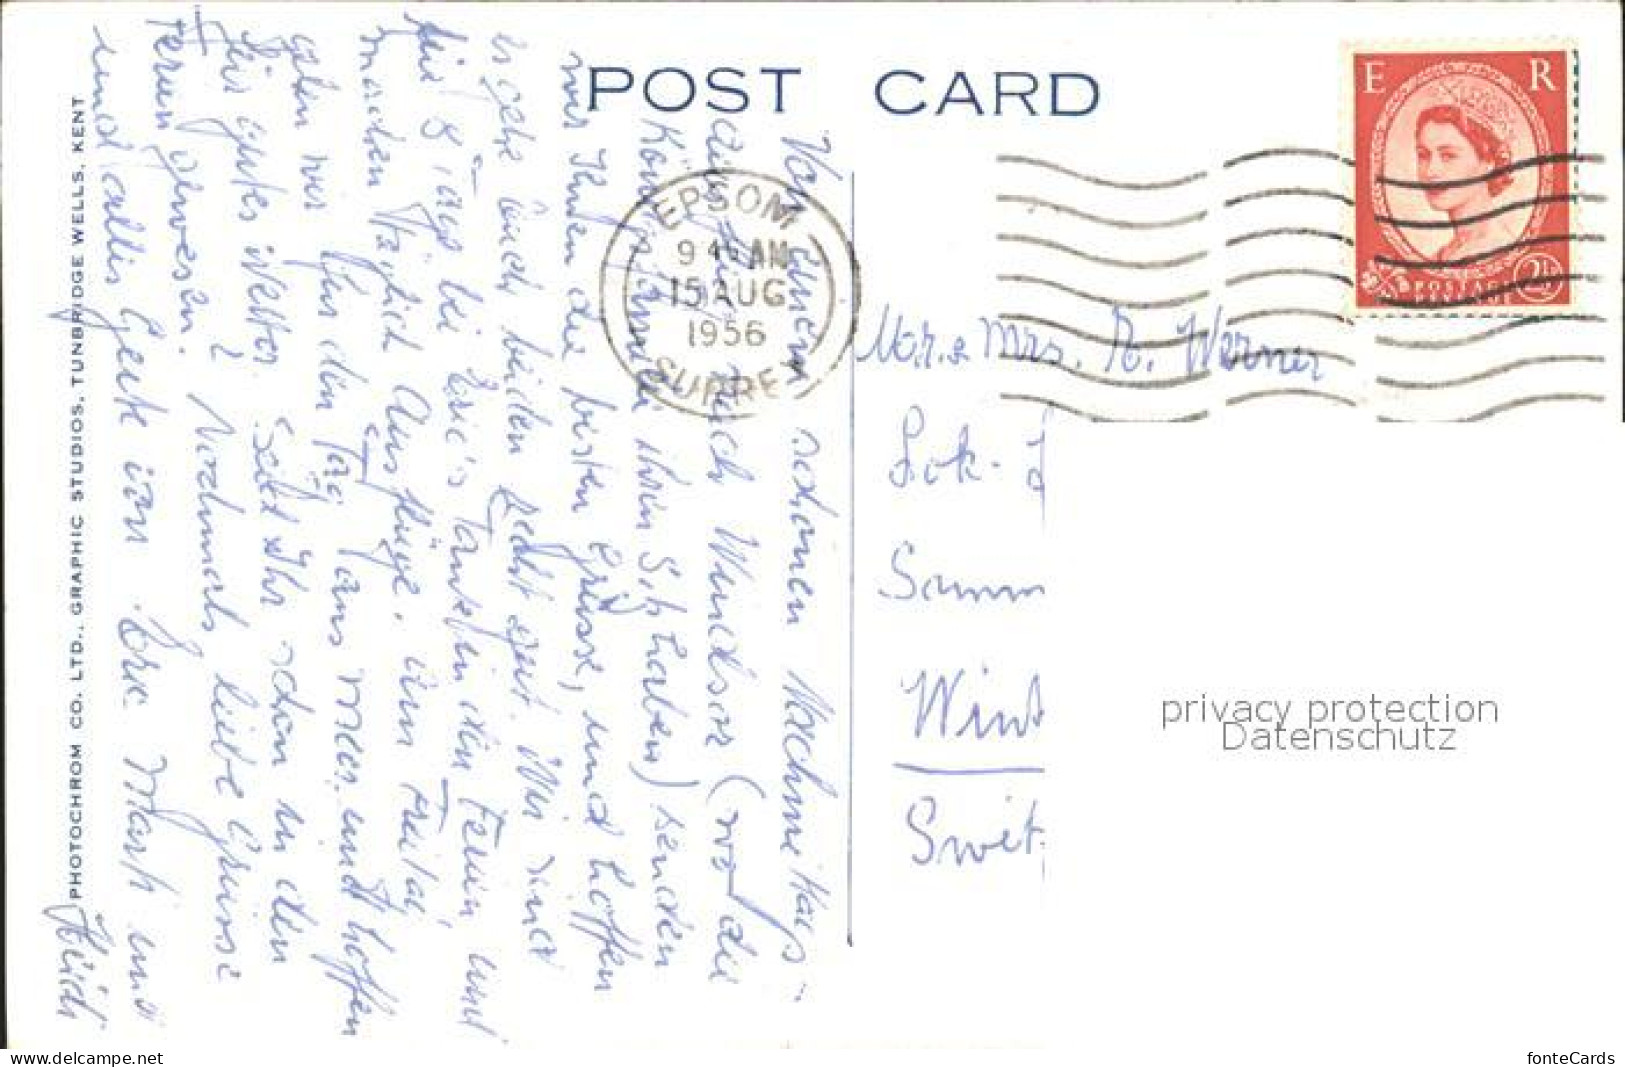 POST CARD
E R
POSTAGE
REVENUE
2½
EPSOM
9 45 AM
15 AUG
1956
SURREY
Von einem schönen Nachmittags-
ausflug nach Windsor (wo die
Königsfamilie ihren Sitz haben) senden
wir Ihnen die besten Grüsse, und hoffen
es gehe Euch beiden recht gut. Wir sind
8 Tage bei Eric's Tante in den Ferien und
machen täglich Ausflüge. Am Freitag
gehen wir für den Tag ans Meer und hoffen
für gutes Wetter. Seid Ihr schon in den
Ferien gewesen? Nochmals liebe Grüsse
und alles Gute von Eric
Mr. & Mrs. R. Werner
Lok-
Samm
Wint
Swit
privacy protection
Datenschutz
PHOTOCHROM CO. LTD., GRAPHIC STUDIOS, TUNBRIDGE WELLS, KENT
www.delcampe.net
fonteCards